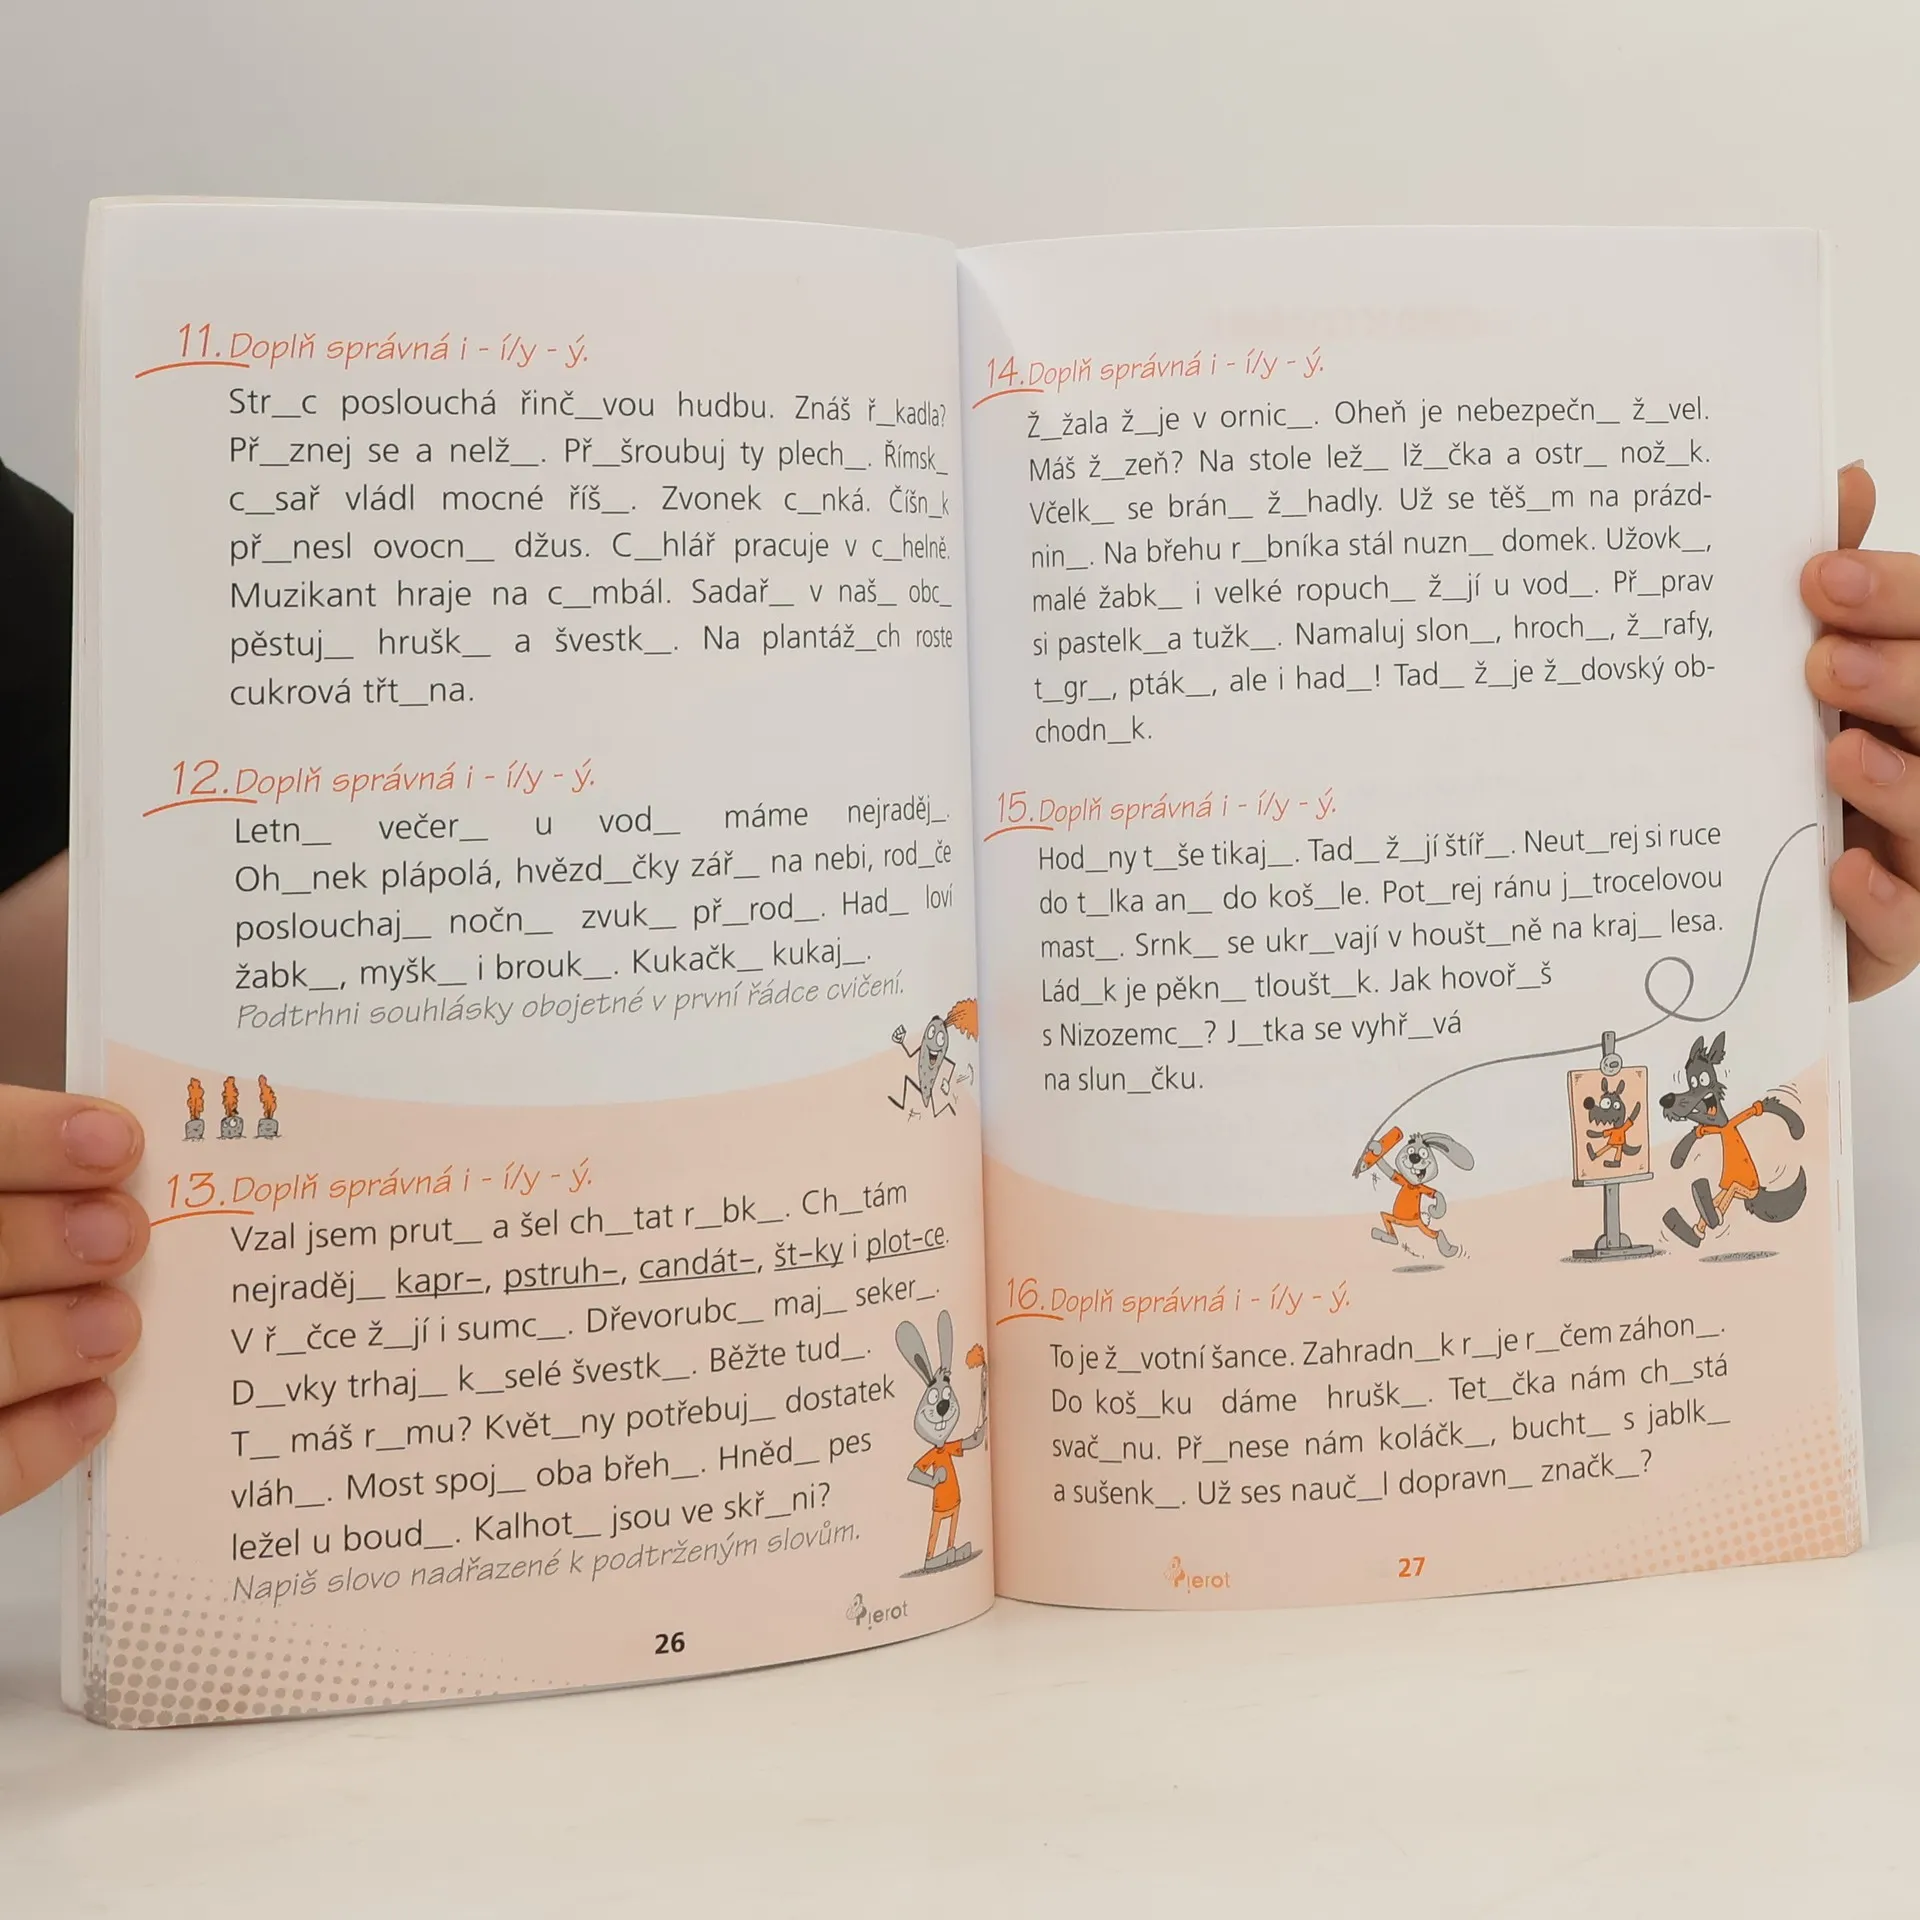 11. Doplň správná i - í/y - ý.
Str__c poslouchá řinč__vou hudbu. Znáš ř__kadla?
Př__znej se a nelž__. Př__šroubuj ty plech__. Římsk__
c__sař vládl mocné říš__. Zvonek c__nká. Číšn__k
př__nesl ovocn__ džus. C__hlář pracuje v c__helně.
Muzikant hraje na c__mbál. Sadař__ v naš__ obc__
pěstuj__ hrušk__ a švestk__. Na plantáž__ch roste
cukrová třt__na.
12. Doplň správná i - í/y - ý.
Letn__ večer__ u vod__ máme nejraděj__.
Oh__nek plápolá, hvězd__čky zář__ na nebi, rod__če
poslouchaj__ nočn__ zvuk__ př__rod__. Had__ loví
žabk__, myšk__ i brouk__. Kukačk__ kukaj__.
Podtrhni souhlásky obojetné v první řádce cvičení.
13. Doplň správná i - í/y - ý.
Vzal jsem prut__ a šel ch__tat r__bk__. Ch__tám
nejraděj__ kapr–, pstruh–, candát–, št–ky i plot–ce.
V ř__čce ž__jí i sumc__. Dřevorubc__ maj__ seker__.
D__vky trhaj__ k__selé švestk__. Běžte tud__.
T__ máš r__mu? Květ__ny potřebuj__ dostatek
vláh__. Most spoj__ oba břeh__. Hněd__ pes
ležel u boud__. Kalhot__ jsou ve skř__ni?
Napiš slovo nadřazené k podtrženým slovům.
Pierot
26
14. Doplň správná i - í/y - ý.
Ž__žala ž__je v ornic__. Oheň je nebezpečn__ ž__vel.
Máš ž__zeň? Na stole lež__ lž__čka a ostr__ nož__k.
Včelk__ se brán__ ž__hadly. Už se těš__m na prázd-
nin__. Na břehu r__bníka stál nuzn__ domek. Užovk__,
malé žabk__ i velké ropuch__ ž__jí u vod__. Př__prav
si pastelk__a tužk__. Namaluj slon__, hroch__, ž__rafy,
t__gr__, pták__, ale i had__! Tad__ ž__je ž__dovský ob-
chodn__k.
15. Doplň správná i - í/y - ý.
Hod__ny t__še tikaj__. Tad__ ž__jí štíř__. Neut__rej si ruce
do t__lka an__ do koš__le. Pot__rej ránu j__trocelovou
mast__. Srnk__ se ukr__vají v houšt__ně na kraj__ lesa.
Lád__k je pěkn__ tloušt__k. Jak hovoř__š
s Nizozemc__? J__tka se vyhř__vá
na slun__čku.
16. Doplň správná i - í/y - ý.
To je ž__votní šance. Zahradn__k r__je r__čem záhon__.
Do koš__ku dáme hrušk__. Tet__čka nám ch__stá
svač__nu. Př__nese nám koláčk__, bucht__ s jablk__
a sušenk__. Už ses nauč__l dopravn__ značk__?
Pierot
27